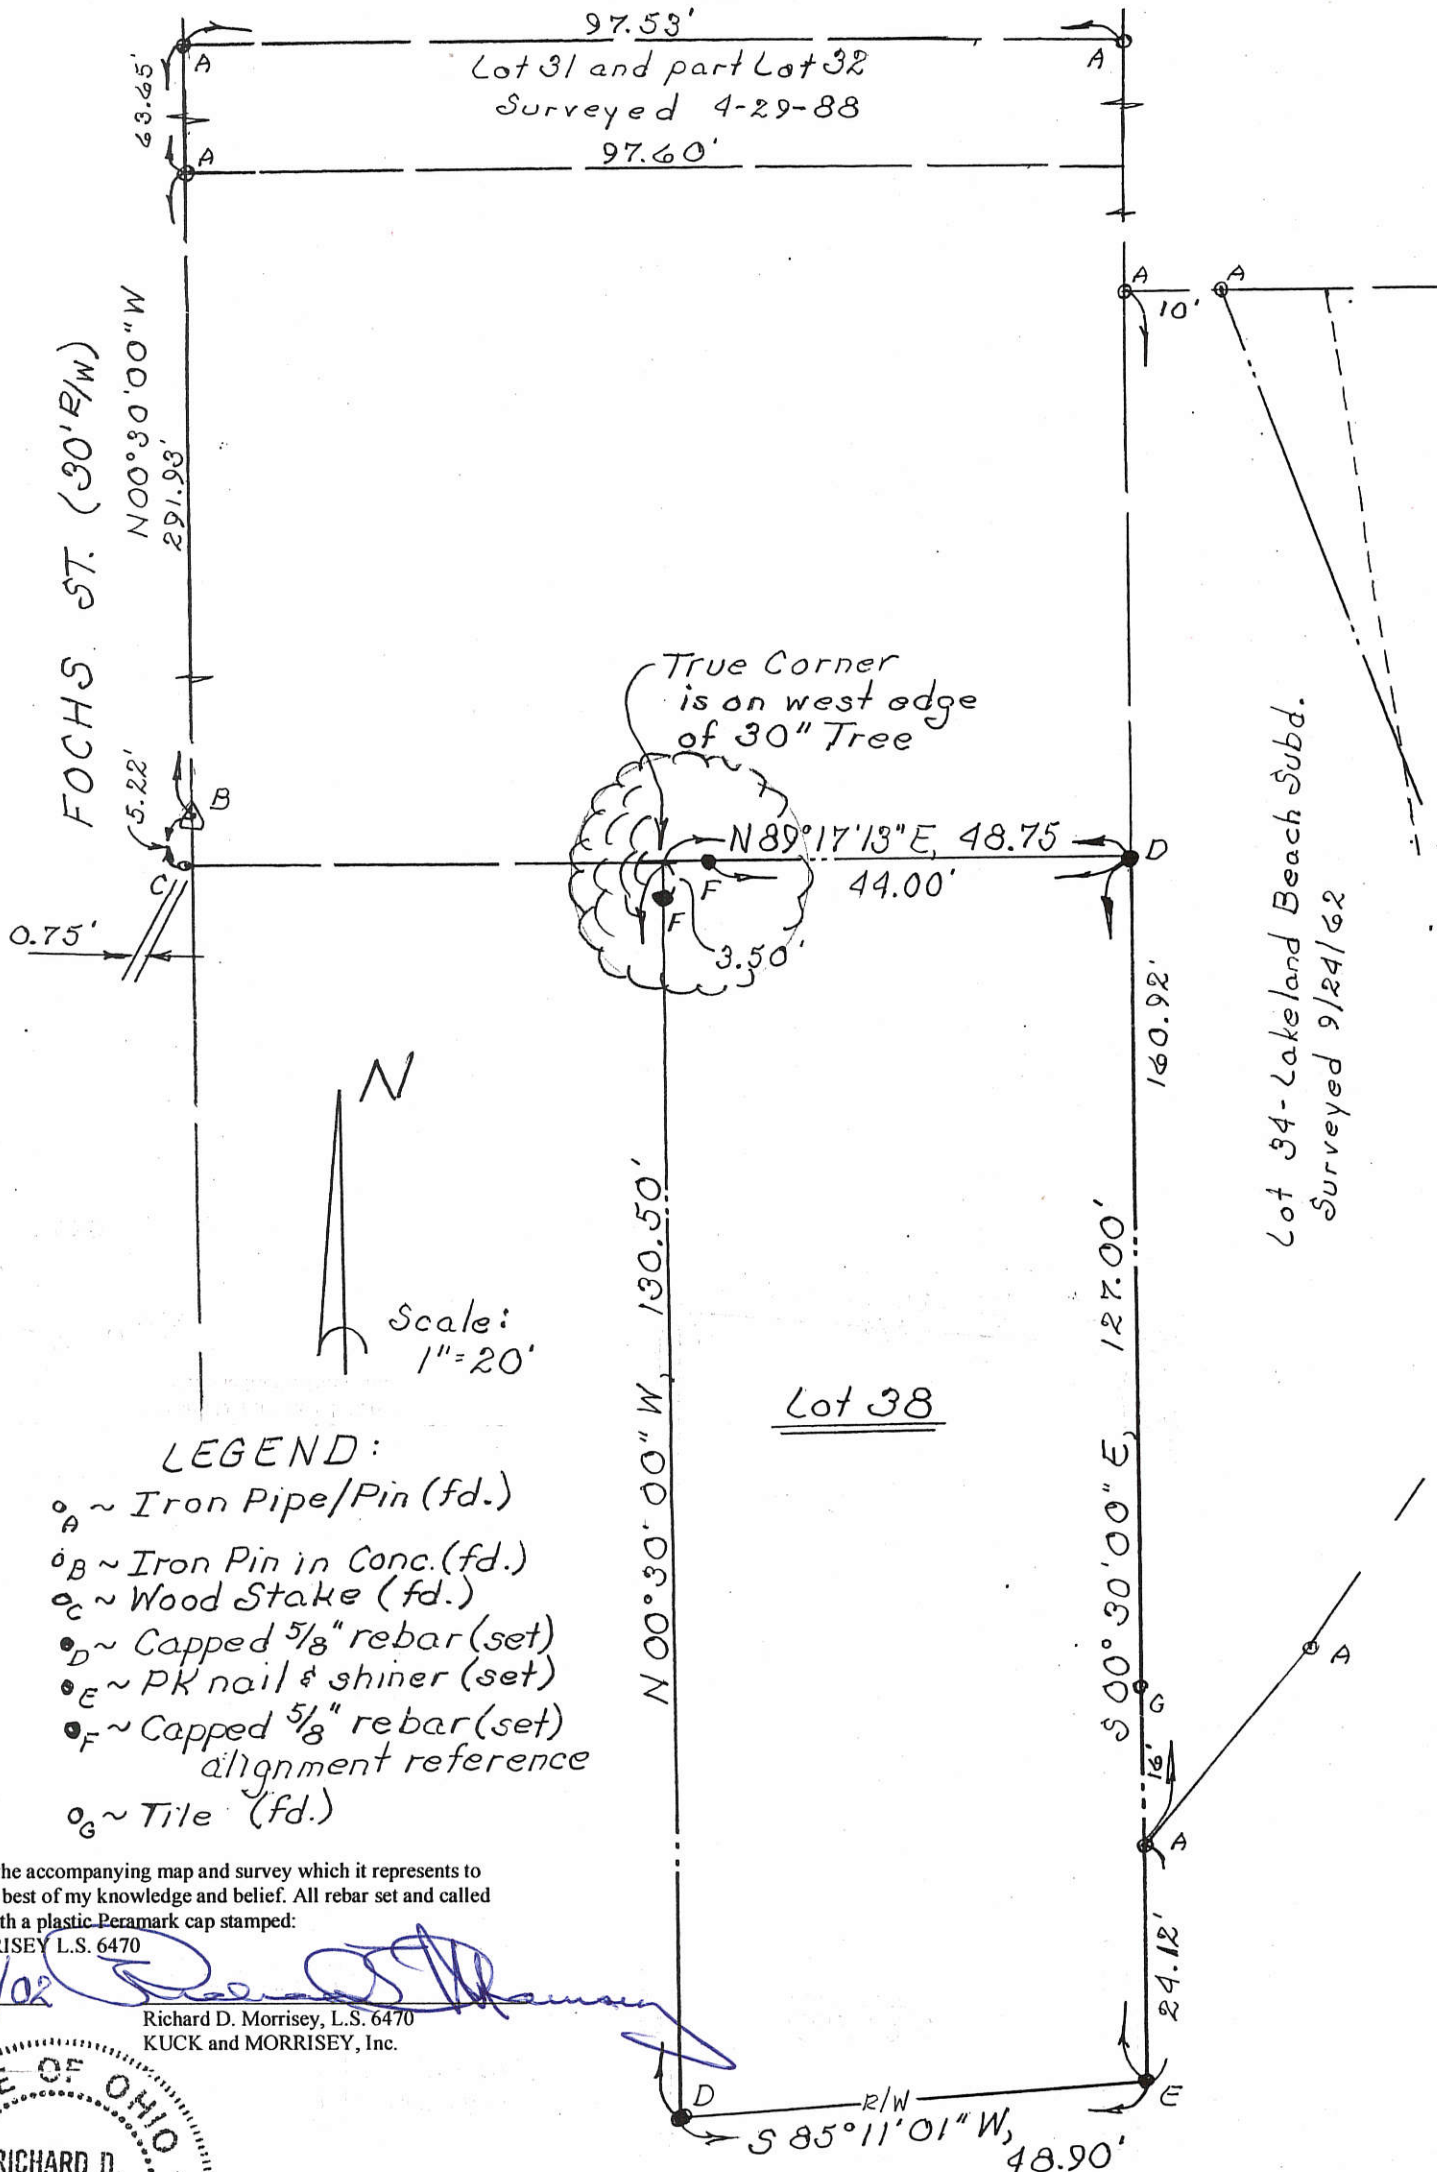 97.53'
A
A
Lot 31 and part Lot 32
Surveyed 4-29-88
63.65'
97.60'
A
A
A
10'
FOCHS ST. (30' R/W)
N00°30'00"W
291.93'
True Corner
is on west edge
of 30" Tree
5.22'
B
N89°17'13"E, 48.75
D
C
F
44.00'
F
0.75'
3.50'
160.92'
Lot 34 - Lakeland Beach Subd.
Surveyed 9/24/62
N
Scale:
1"=20'
N00°30'00"W, 130.50'
S00°30'00"E, 127.00'
Lot 38
LEGEND:
A ~ Iron Pipe/Pin (fd.)
B ~ Iron Pin in Conc. (fd.)
C ~ Wood Stake (fd.)
D ~ Capped 5/8" rebar (set)
E ~ PK nail & shiner (set)
F ~ Capped 5/8" rebar (set)
alignment reference
G ~ Tile (fd.)
A
G
16'
A
he accompanying map and survey which it represents to
best of my knowledge and belief. All rebar set and called
th a plastic Peramark cap stamped:
RISEY L.S. 6470
/02
Richard D. Morrisey, L.S. 6470
KUCK and MORRISEY, Inc.
24.12'
D
R/W
E
S85°11'01"W,
48.90'
E OF OHIO
RICHARD D.